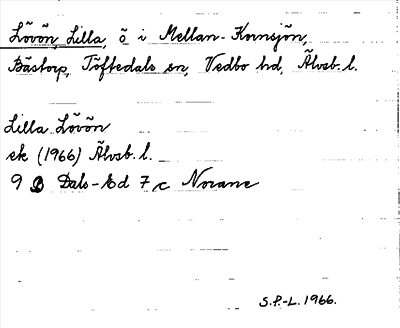 Lövön Lilla, ö i Mellan-Kornsjön,
Bästorp, Töftedals sn, Vedbo hd, Älvsb. l.
Lilla Lövön
ek (1966) Älvsb. l.
9 B Dals-Ed 7 c Norane
S.P.-L. 1966.